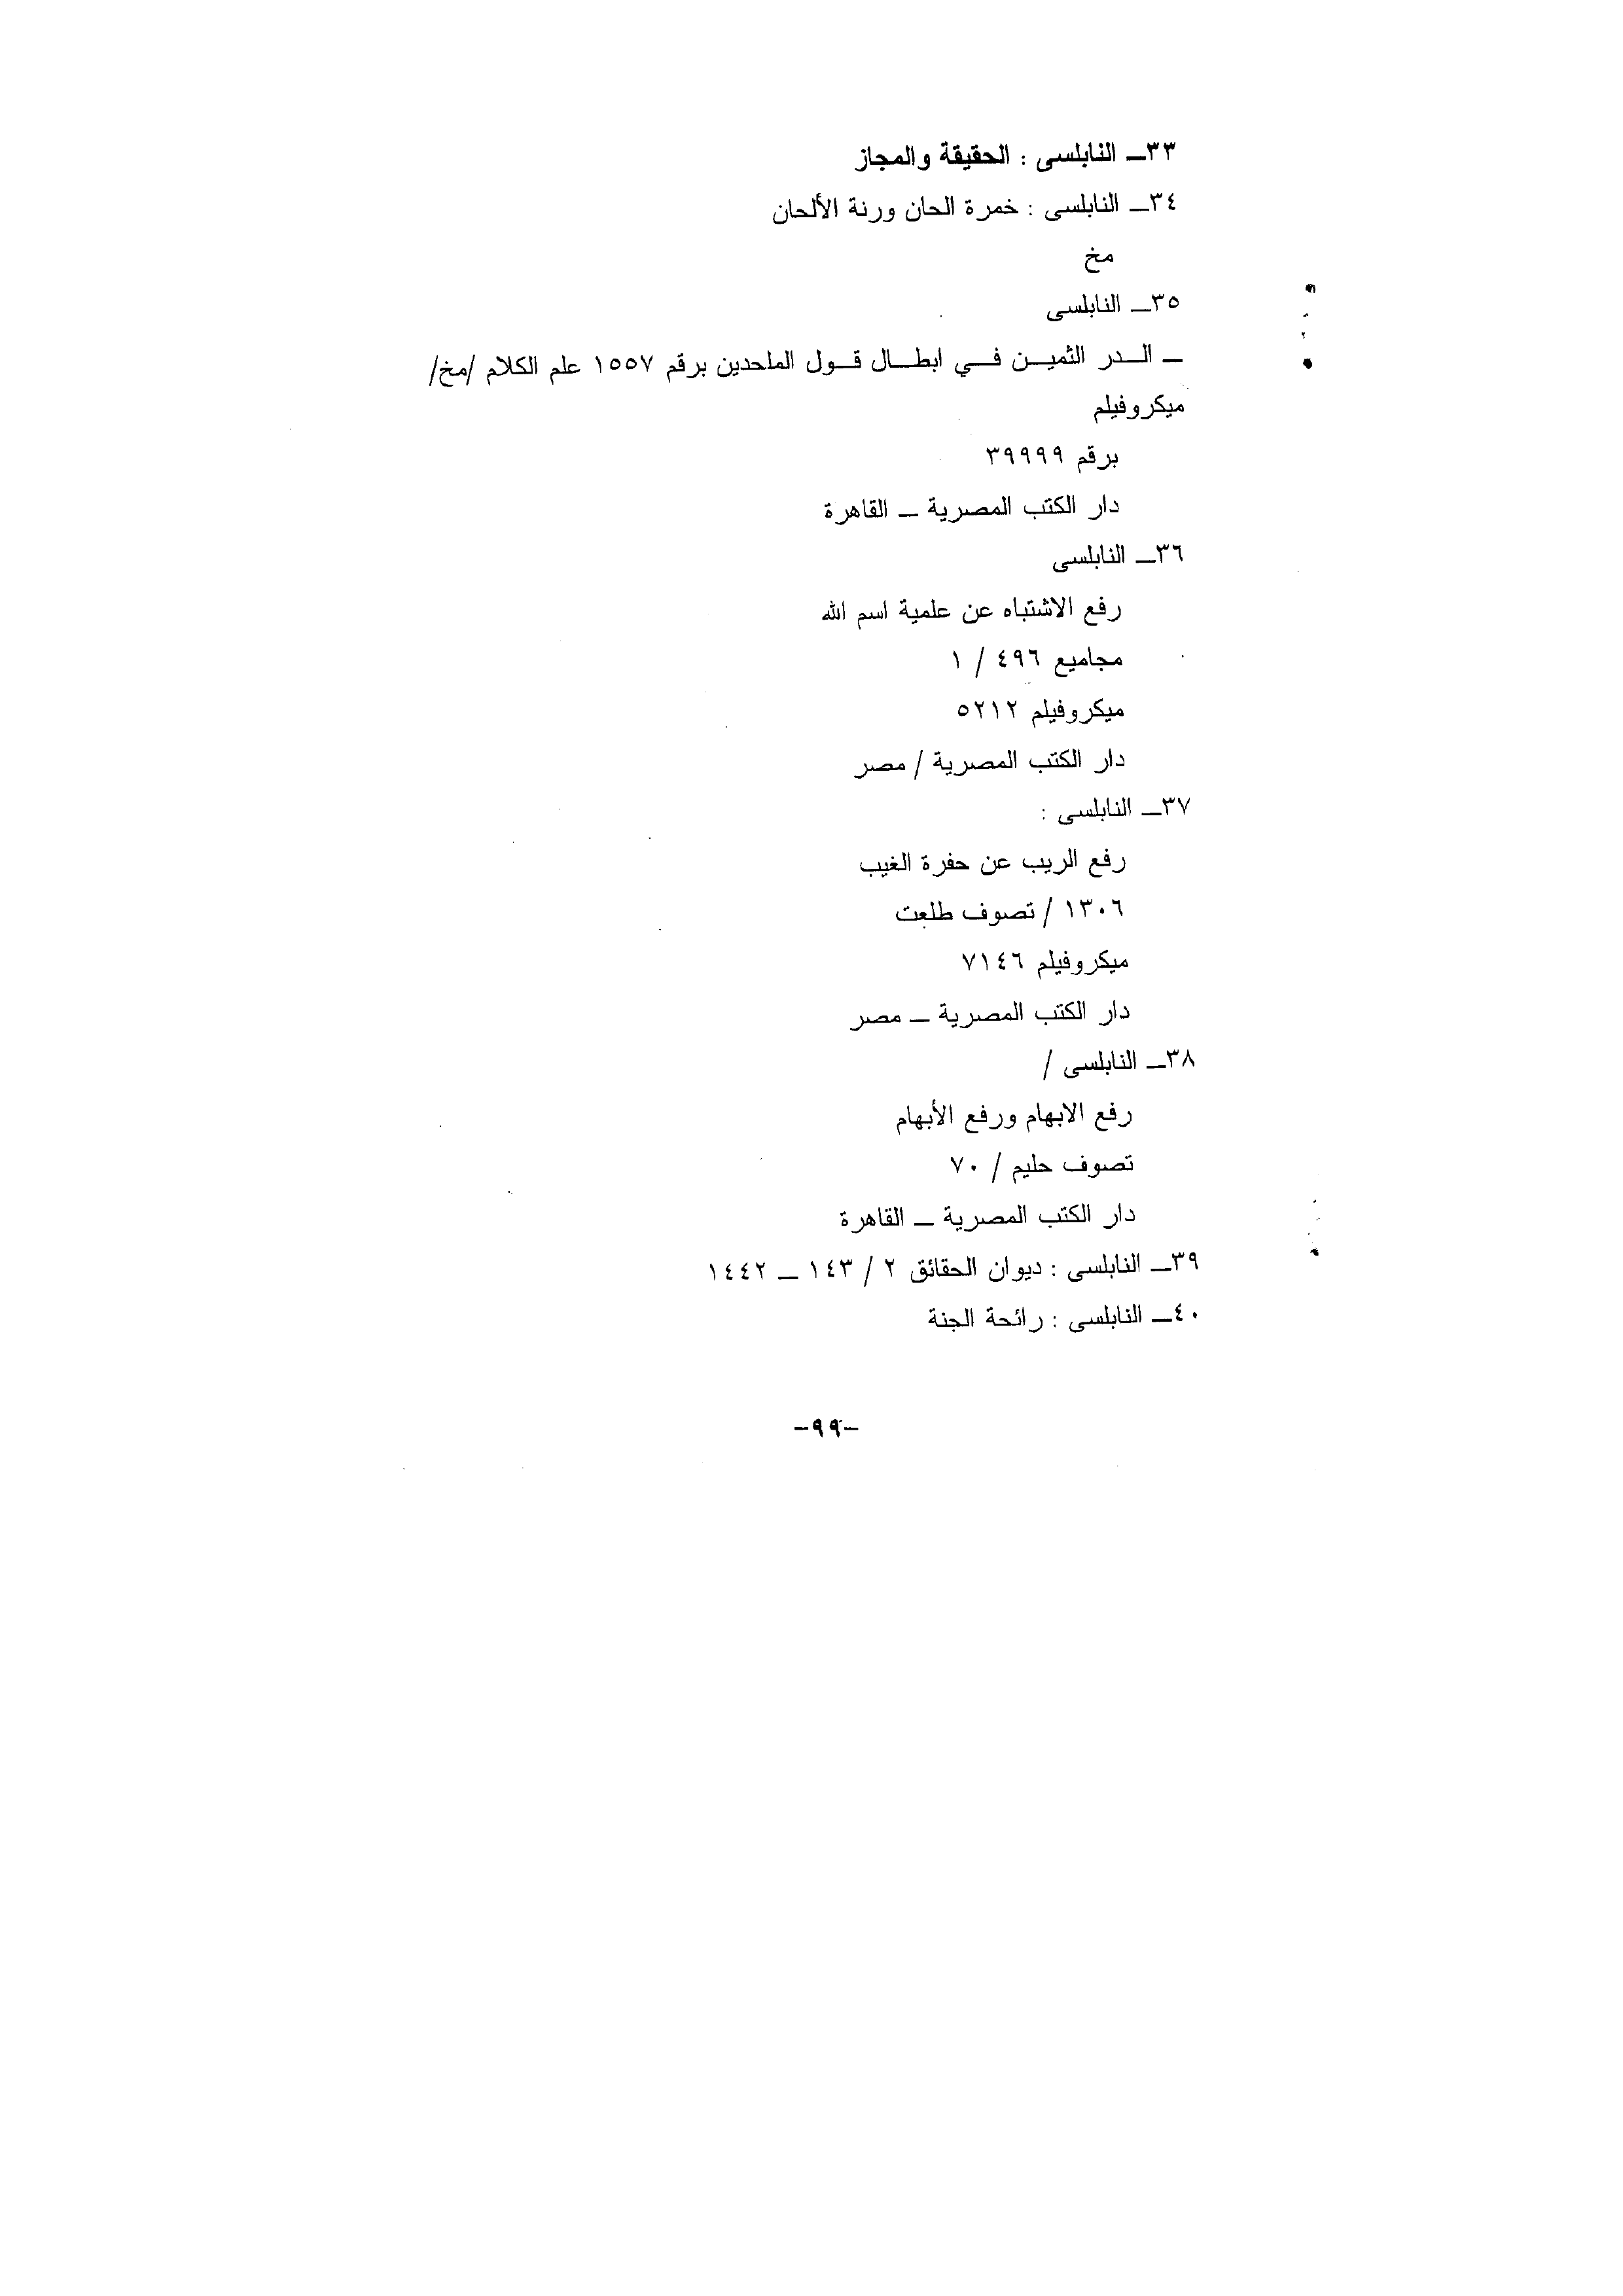 ٣٣ــ النابلسى : الحقيقة والمجاز
٣٤ــ النابلسى : خمرة الحان ورنة الألحان
مخ
٣٥ــ النابلسى
ــ الــدر الثميــن فــي ابطــال قــول الملحدين برقم ١٥٥٧ علم الكلام /مخ/
ميكروفيلم
برقم ٣٩٩٩٩
دار الكتب المصرية ــ القاهرة
٣٦ــ النابلسى
رفع الاشتباه عن علمية اسم الله
مجاميع ٤٩٦ / ١
ميكروفيلم ٥٢١٢
دار الكتب المصرية / مصر
٣٧ــ النابلسى :
رفع الريب عن حفرة الغيب
١٣٠٦ / تصوف طلعت
ميكروفيلم ٧١٤٦
دار الكتب المصرية ــ مصر
٣٨ــ النابلسى /
رفع الابهام ورفع الأبهام
تصوف حليم / ٧٠
دار الكتب المصرية ــ القاهرة
٣٩ــ النابلسى : ديوان الحقائق ٢ / ١٤٣ ــ ١٤٤٢
٤٠ــ النابلسى : رائحة الجنة
-٩٩-